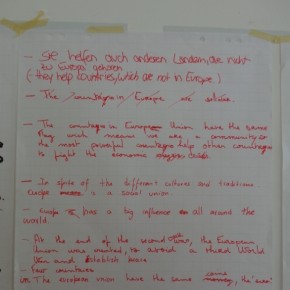 - Sie helfen auch anderen Ländern, die nicht
zu Europa gehören
(- they help countries, which are not in Europe)
- The countries in Europe are
- The countries in Europe Union have the same
flag wich means we are a community so
the most powerful countries help other countries
to fight the economic crisis
- In spite of the different cultures and traditions
Europe is a social union.
- Europe has a big influence all around the
world.
- At the end of the second war, the European
Union was created, to avoid a third World
War and establish peace.
- Four
- The european union have the same the "euro"